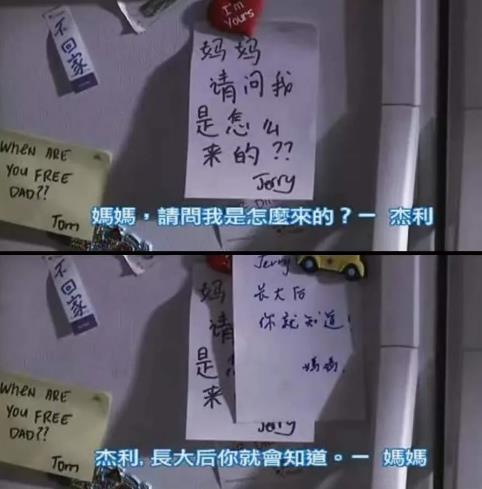 I'm
Yours
不回家
妈妈
请问我
是怎么
来的??
Jerry
WHEN ARE
YOU FREE
DAD??
Tom
媽媽，請問我是怎麼來的？－ 杰利
不回家
妈
请
是
来
Jerry
Jerry
长大后
你就知道!
媽媽.
WHEN ARE
YOU FREE
DAD??
Tom
杰利, 長大后你就會知道。－ 媽媽